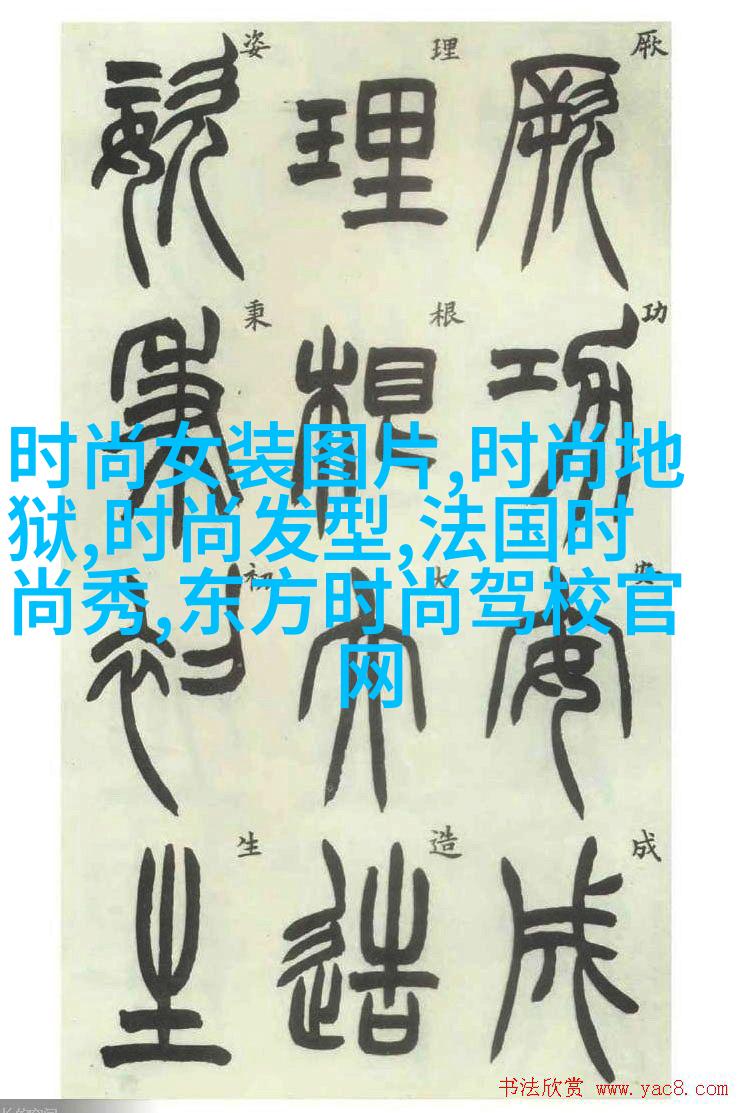 厥功安成
理根大造
姿秉初生
时尚女装图片,时尚地
狱,时尚发型,法国时
尚秀,东方时尚驾校官
网
书法欣赏 www.yac8.com